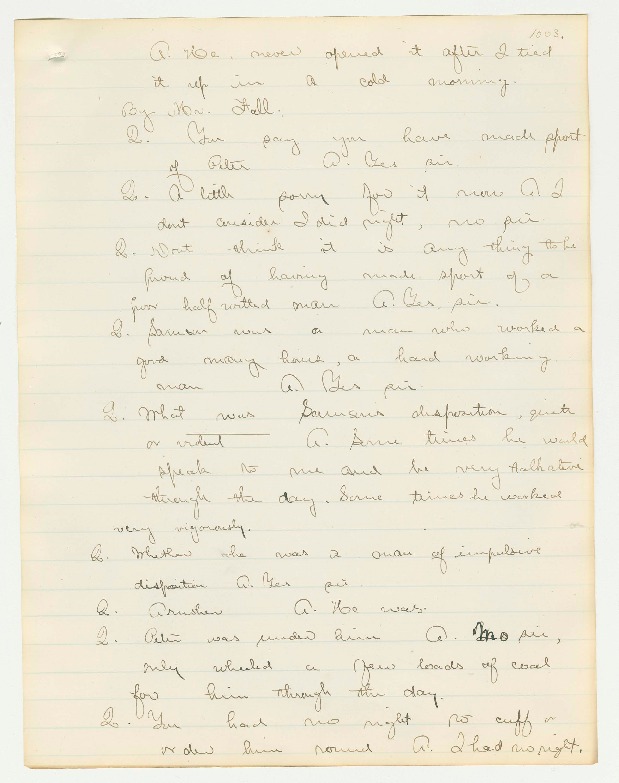 1003.
A. He never opened it after I tied
it up in a cold morning.
By Mr. Fall.
Q. You say you have made sport
of Peter A. Yes sir
Q. A little sorry for it now A I
dont consider I did right, no sir
Q. Dont think it is any thing to be
proud of having made sport of a
poor half witted man A. Yes sir.
Q. Samson was a man who worked a
good many hours, a hard working
man A. Yes sir.
Q. What was Samson's disposition, quiet
or violent A. Some times he would
speak to me and be very talkative
through the day. Some times he worked
very vigorously.
Q. Whether he was a man of impulsive
disposition A. Yes sir
Q. A rusher A. He was.
Q. Peter was under him A. No sir,
only wheeled a few loads of coal
for him through the day.
Q. You had no right to cuff or
order him round A. I had no right.